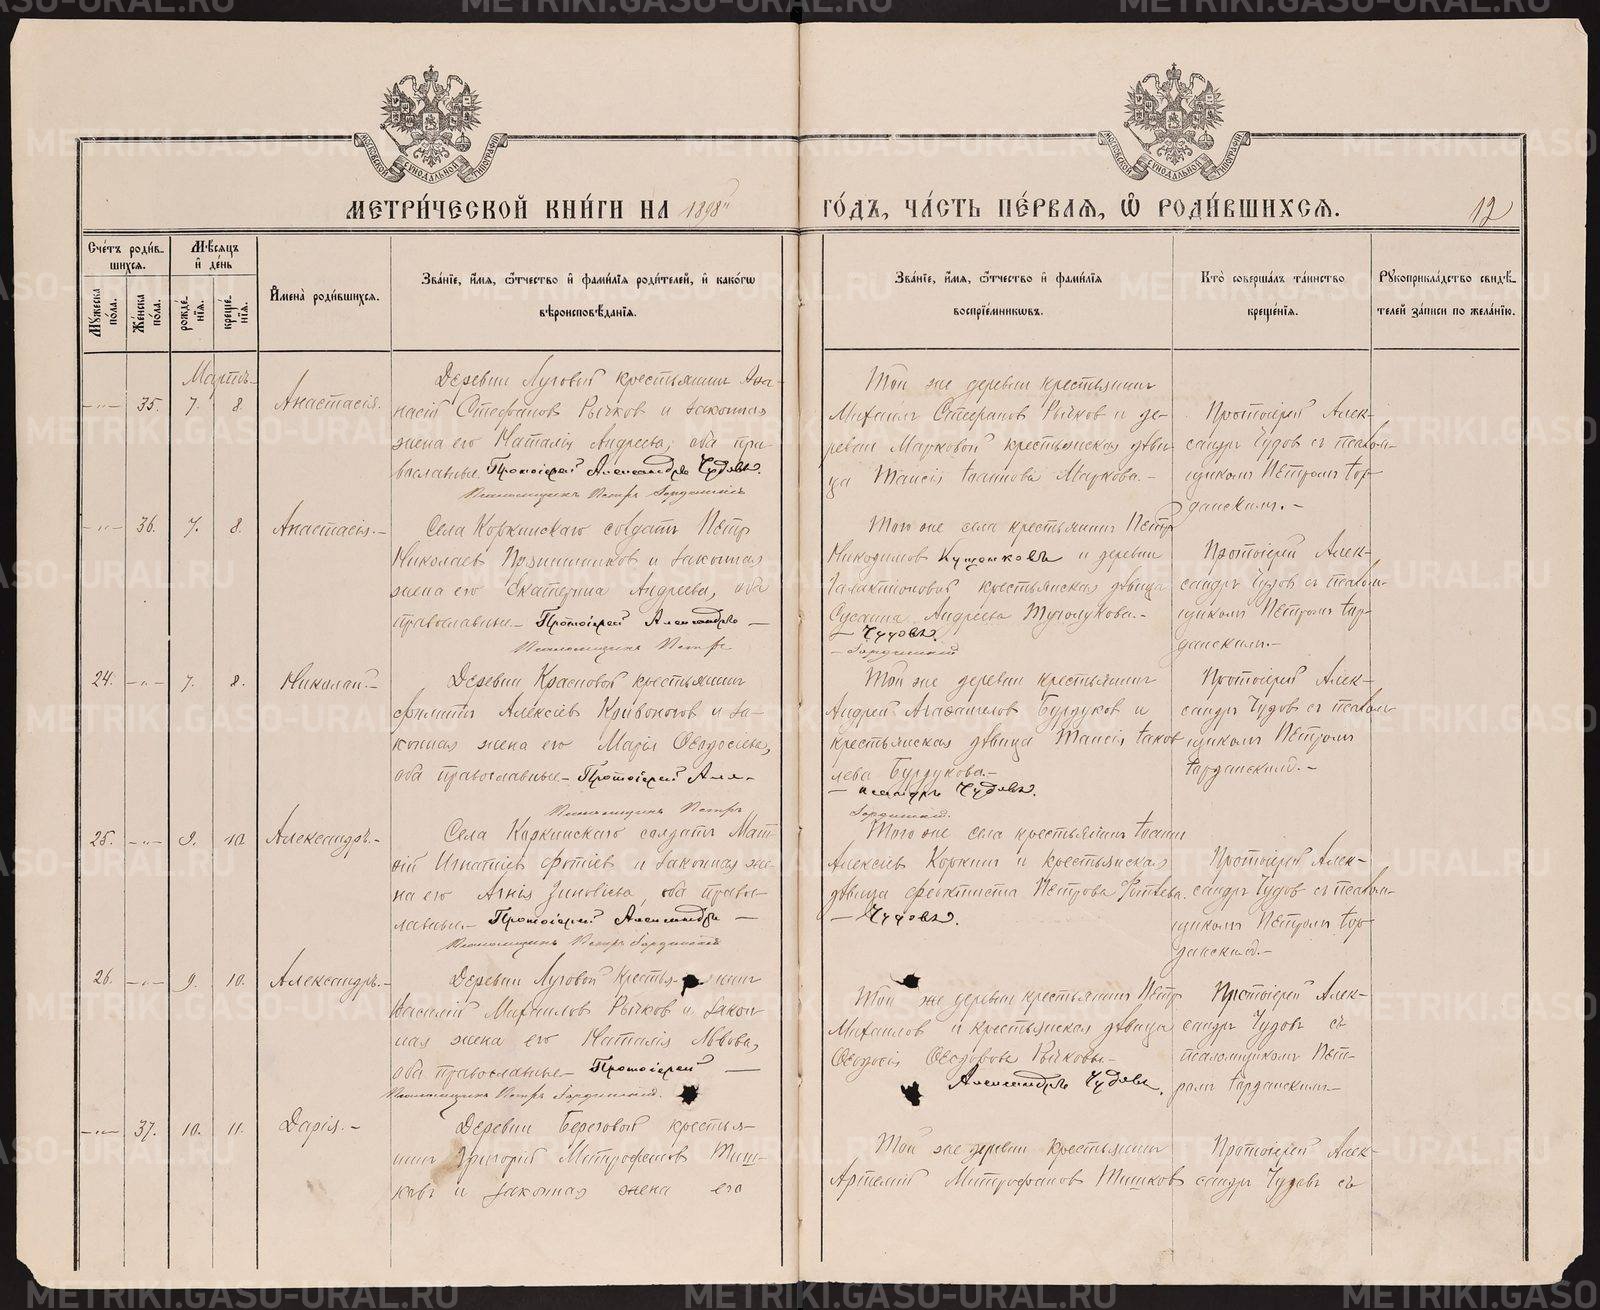 МЕТРИЧЕСКОЙ КНИГИ НА 1898й
ГОДЪ, ЧАСТЬ ПЕРВАЯ, Ѡ РОДИВШИХСЯ.
12
Счетъ родив-
шихся.
Мѣсяцъ
и день
Мужеска пола.
Женска пола.
рожденія.
крещенія.
Имена родившихся.
Званіе, имя, отчество и фамилія родителей, и какогѡ
вѣроисповѣданія.
Званіе, имя, отчество и фамилія
воспріемниковъ.
Кто совершалъ таинство
крещенія.
Рукоприкладство свидѣ-
телей записи по желанію.
Мартъ
35. 7. 8. Анастасія.
Деревни Луговой крестьянинъ Ана-
насій Стефановъ Рычков и законная
жена его Наталія Андреева, оба пра-
вославные. Протоіерей Александръ Чудовъ.
Псаломщикъ Петръ Іорданскій
Той же деревни крестьянинъ
Михаилъ Стефанов Рычков и де-
ревни Марковой крестьянская дѣви-
ца Таисія Іоаннова Маркова.-
Протоіерей Алек-
сандръ Чудов съ псалом-
щикомъ Петромъ Іор-
данскимъ.-
36. 7. 8. Анастасія.-
Села Коркинскаго солдатъ Петръ
Николаевъ и законная
жена его Екатерина Андреева, оба
православные.- Протоіерей Александръ —
Псаломщикъ Петръ
Того же села крестьянинъ Петръ
Никодимов и деревни
Галактіоновой крестьянская дѣвица
Сусанна Андреева Туголукова.-
— Чудовъ.
- Іорданскій
Протоіерей Алек-
сандръ Чудов съ псалом-
щикомъ Петромъ Іор-
данскимъ.-
24. 7. 8. Николай.-
Деревни Красновой крестьянинъ
Филиппъ Алексіевъ Кривоногов и за-
конная жена его Марія Ѳеодосіева,
оба православные- Протоіерей Але-
Псаломщикъ Петръ
Той же деревни крестьянинъ
Андрей Агафангелов Бурдуков и
крестьянская дѣвица Таисія Іаков-
лева Бурдукова.-
- ксандръ Чудовъ.
Іорданскій.
Протоіерей Алек-
сандръ Чудов съ псалом-
щикомъ Петромъ
Іорданскимъ.-
25. 9. 10. Александръ.-
Села Коркинскаго солдатъ Мат-
ѳій Игнатіевъ Фотіев и законная же-
на его Агнія Зиновіева, оба правос-
лавные.- Протоіерей Александръ —
Псаломщикъ Петръ Іорданскій
Того же села крестьянинъ Іоаннъ
Алексіевъ Коркинъ и крестьянская
дѣвица Феоктиста Петрова Фотіева.
— Чудовъ.
Протоіерей Алек-
сандръ Чудов съ псалом-
щикомъ Петромъ Іор-
данскимъ.-
26. 9. 10. Александръ.-
Деревни Луговой крестьянинъ
Василій Михаилов Рычков и закон-
ная жена его Наталія Львова,
оба православные- Протоіерей —
Псаломщикъ Петръ Іорданскій.
Той же деревни крестьянинъ Петръ
Михаилов и крестьянская дѣвица
Ѳеодосія Ѳеодорова Рычковы.-
Александръ Чудовъ.
Протоіерей Алек-
сандръ Чудовъ съ
псаломщикомъ Пет-
ромъ Іорданскимъ.-
37. 10. 11. Дарія.-
Деревни Береговой крестья-
нинъ Григорій Митрофанов Тиш-
ковъ и законная жена его
Той же деревни крестьянинъ
Артемій Митрофанов Тишков
Протоіерей Алек-
сандръ Чудовъ съ